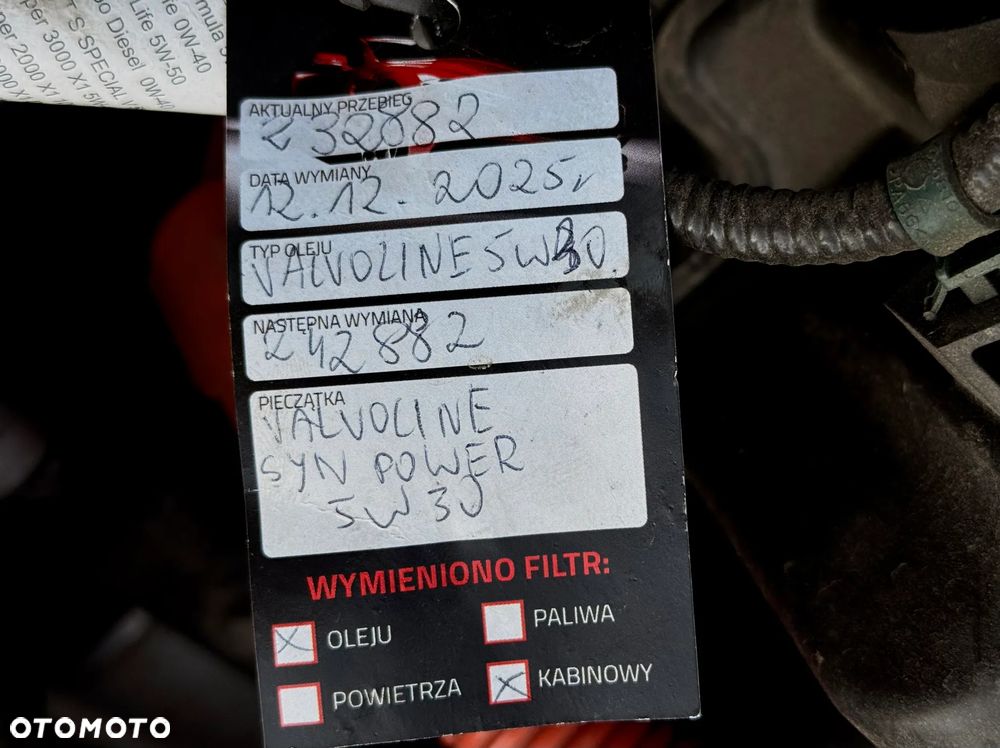 mula
fe 0W-40
Life 5W-50
bo Diesel 0W-40
T S SPECIAL
per 3000 X1 5W
per 2000 X1
AKTUALNY PRZEBIEG
232882
DATA WYMIANY
12.12.2025r
TYP OLEJU
VALVOLINE 5W30.
NASTĘPNA WYMIANA
242882
PIECZĄTKA
VALVOLINE
SYN POWER
5W30
WYMIENIONO FILTR:
OLEJU
PALIWA
POWIETRZA
KABINOWY
OTOMOTO